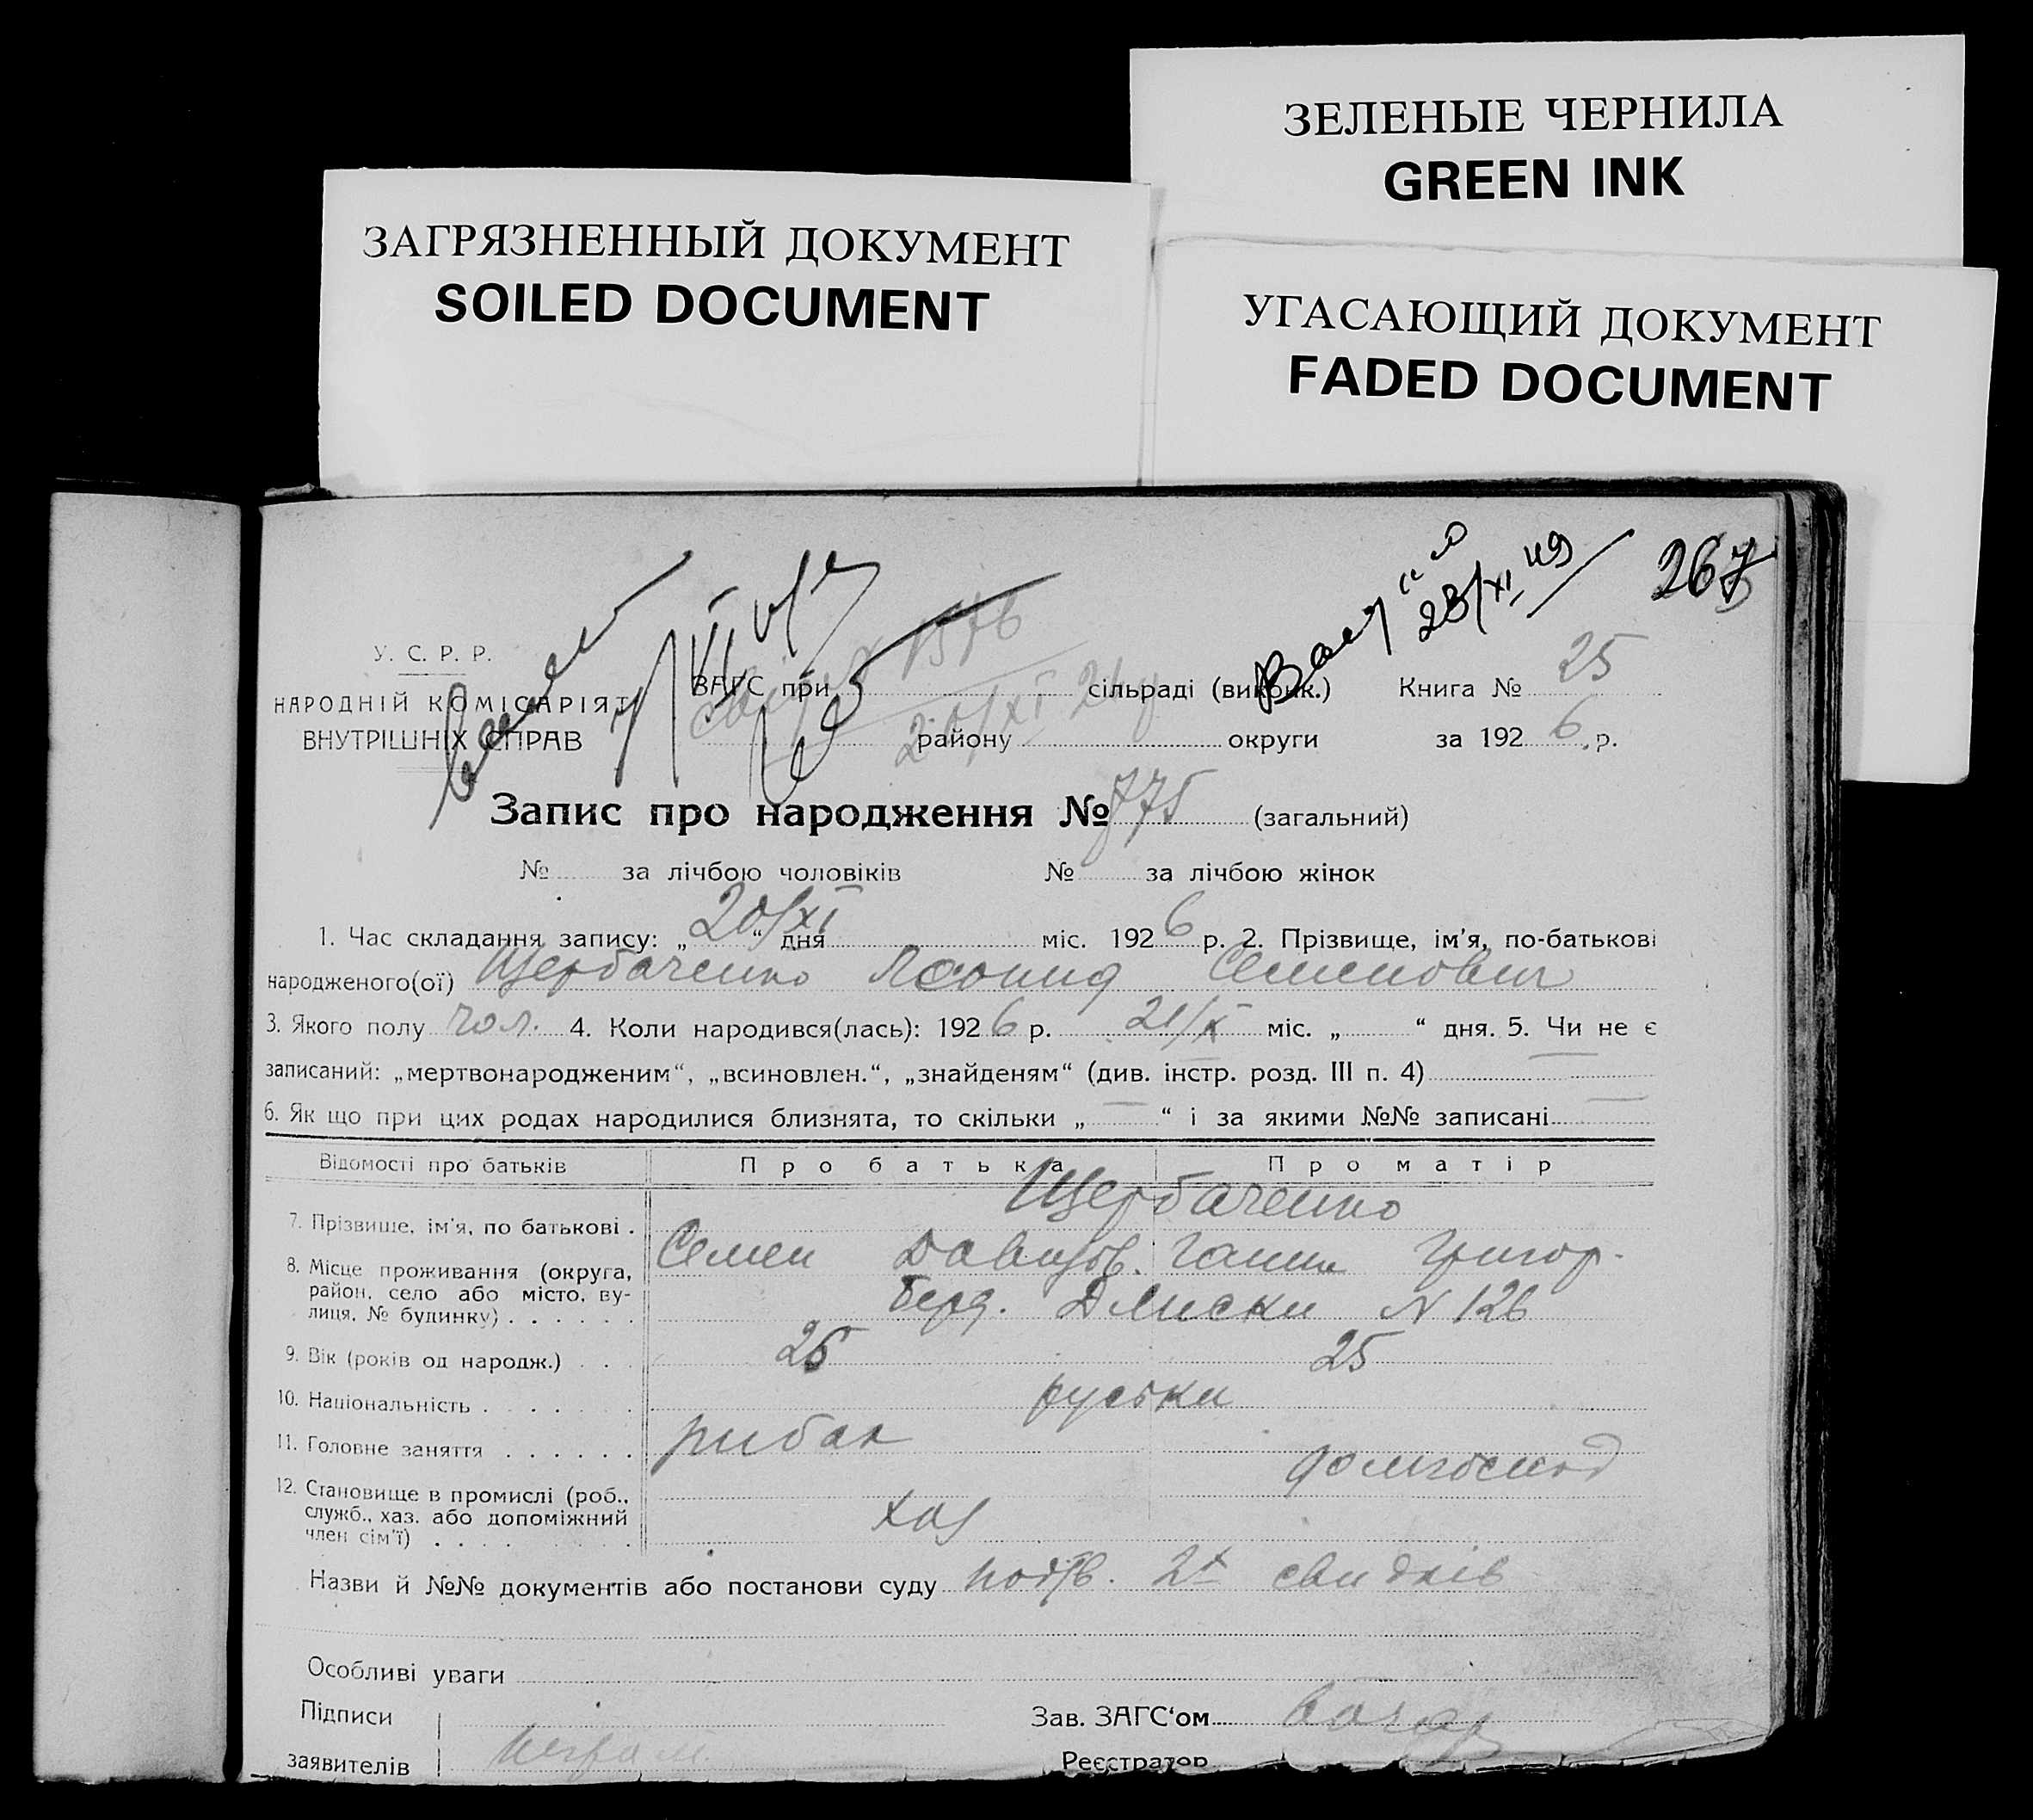 ЗЕЛЕНЫЕ ЧЕРНИЛА
GREEN INK
ЗАГРЯЗНЕННЫЙ ДОКУМЕНТ
SOILED DOCUMENT
УГАСАЮЩИЙ ДОКУМЕНТ
FADED DOCUMENT
23/XI 49
267
У. С. Р. Р.
НАРОДНІЙ КОМІСАРІЯТ
ВНУТРІШНІХ СПРАВ
ЗАГС при сільраді (виконк.) Книга № 25
району округи за 1926 р.
1576
20/XI 26
Запис про народження № 775 (загальний)
№ за лічбою чоловіків № за лічбою жінок
1. Час складання запису: „20/XI“ дня міс. 1926 р. 2. Прізвище, ім'я, по-батькові
народженого(ої) Щербаченко Леонид Семенович
3. Якого полу чол. 4. Коли народився(лась): 1926 р. 21/X міс. „ “ дня. 5. Чи не є
записаний: „мертвонародженим“, „всиновлен.“, „знайденям“ (див. інстр. розд. III п. 4) —
6. Як що при цих родах народилися близнята, то скільки „—“ і за якими №№ записані —
Відомості про батьків Про батька Про матір
7. Прізвище, ім'я, по батькові . Щербаченко
Семен Давидов. Ганна Григор.
8. Місце проживання (округа, район, село або місто, ву-
лиця, № будинку) . . . . . . Берд. Лиски N 126
9. Вік (років од народж.) . . . 26 25
10. Національність . . . . . . руськи
11. Головне заняття . . . . . . рибак домгоспод
12. Становище в промислі (роб.,
служб., хаз. або допоміжний
член сім'ї) . . . . хаз
Назви й №№ документів або постанови суду подтв. 2х свидків
Особливі уваги
Підписи Зав. ЗАГС'ом
заявителів неграм. Реєстратор